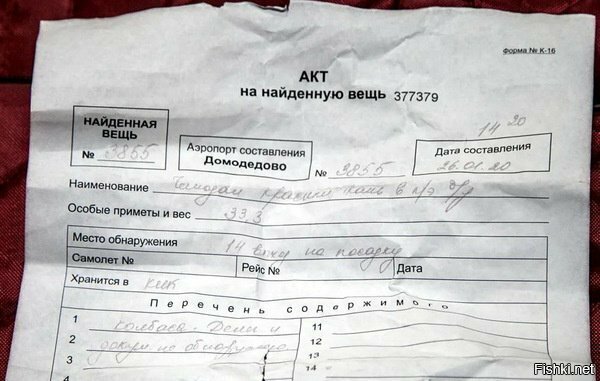 Форма № К-16
АКТ
на найденную вещь 377379
НАЙДЕННАЯ ВЕЩЬ
№ 3855
Аэропорт составления
Домодедово
№ 3855
14 20
Дата составления
26.01.20
Наименование Чемодан красный ткань в п/э
Особые приметы и вес 33,3
Место обнаружения 14 выход на посадку
Самолет № Рейс № Дата
Хранится в
Перечень содержимого
1 колбаса. Денег и
2 докум. не обнаружено
3
11
12
13
14
Fishki.net